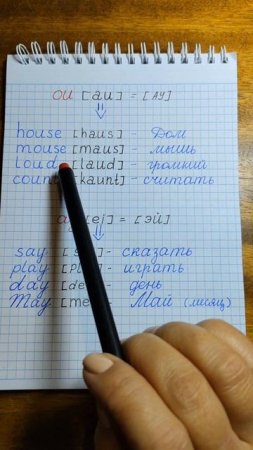 ou [au] = [ау]
house [haus] - Дом
mouse [maus] - мышь
loud [laud] - громкий
count [kaunt] - считать
[ei] = [эй]
say - сказать
play - играть
day - день
May - Май (месяц)